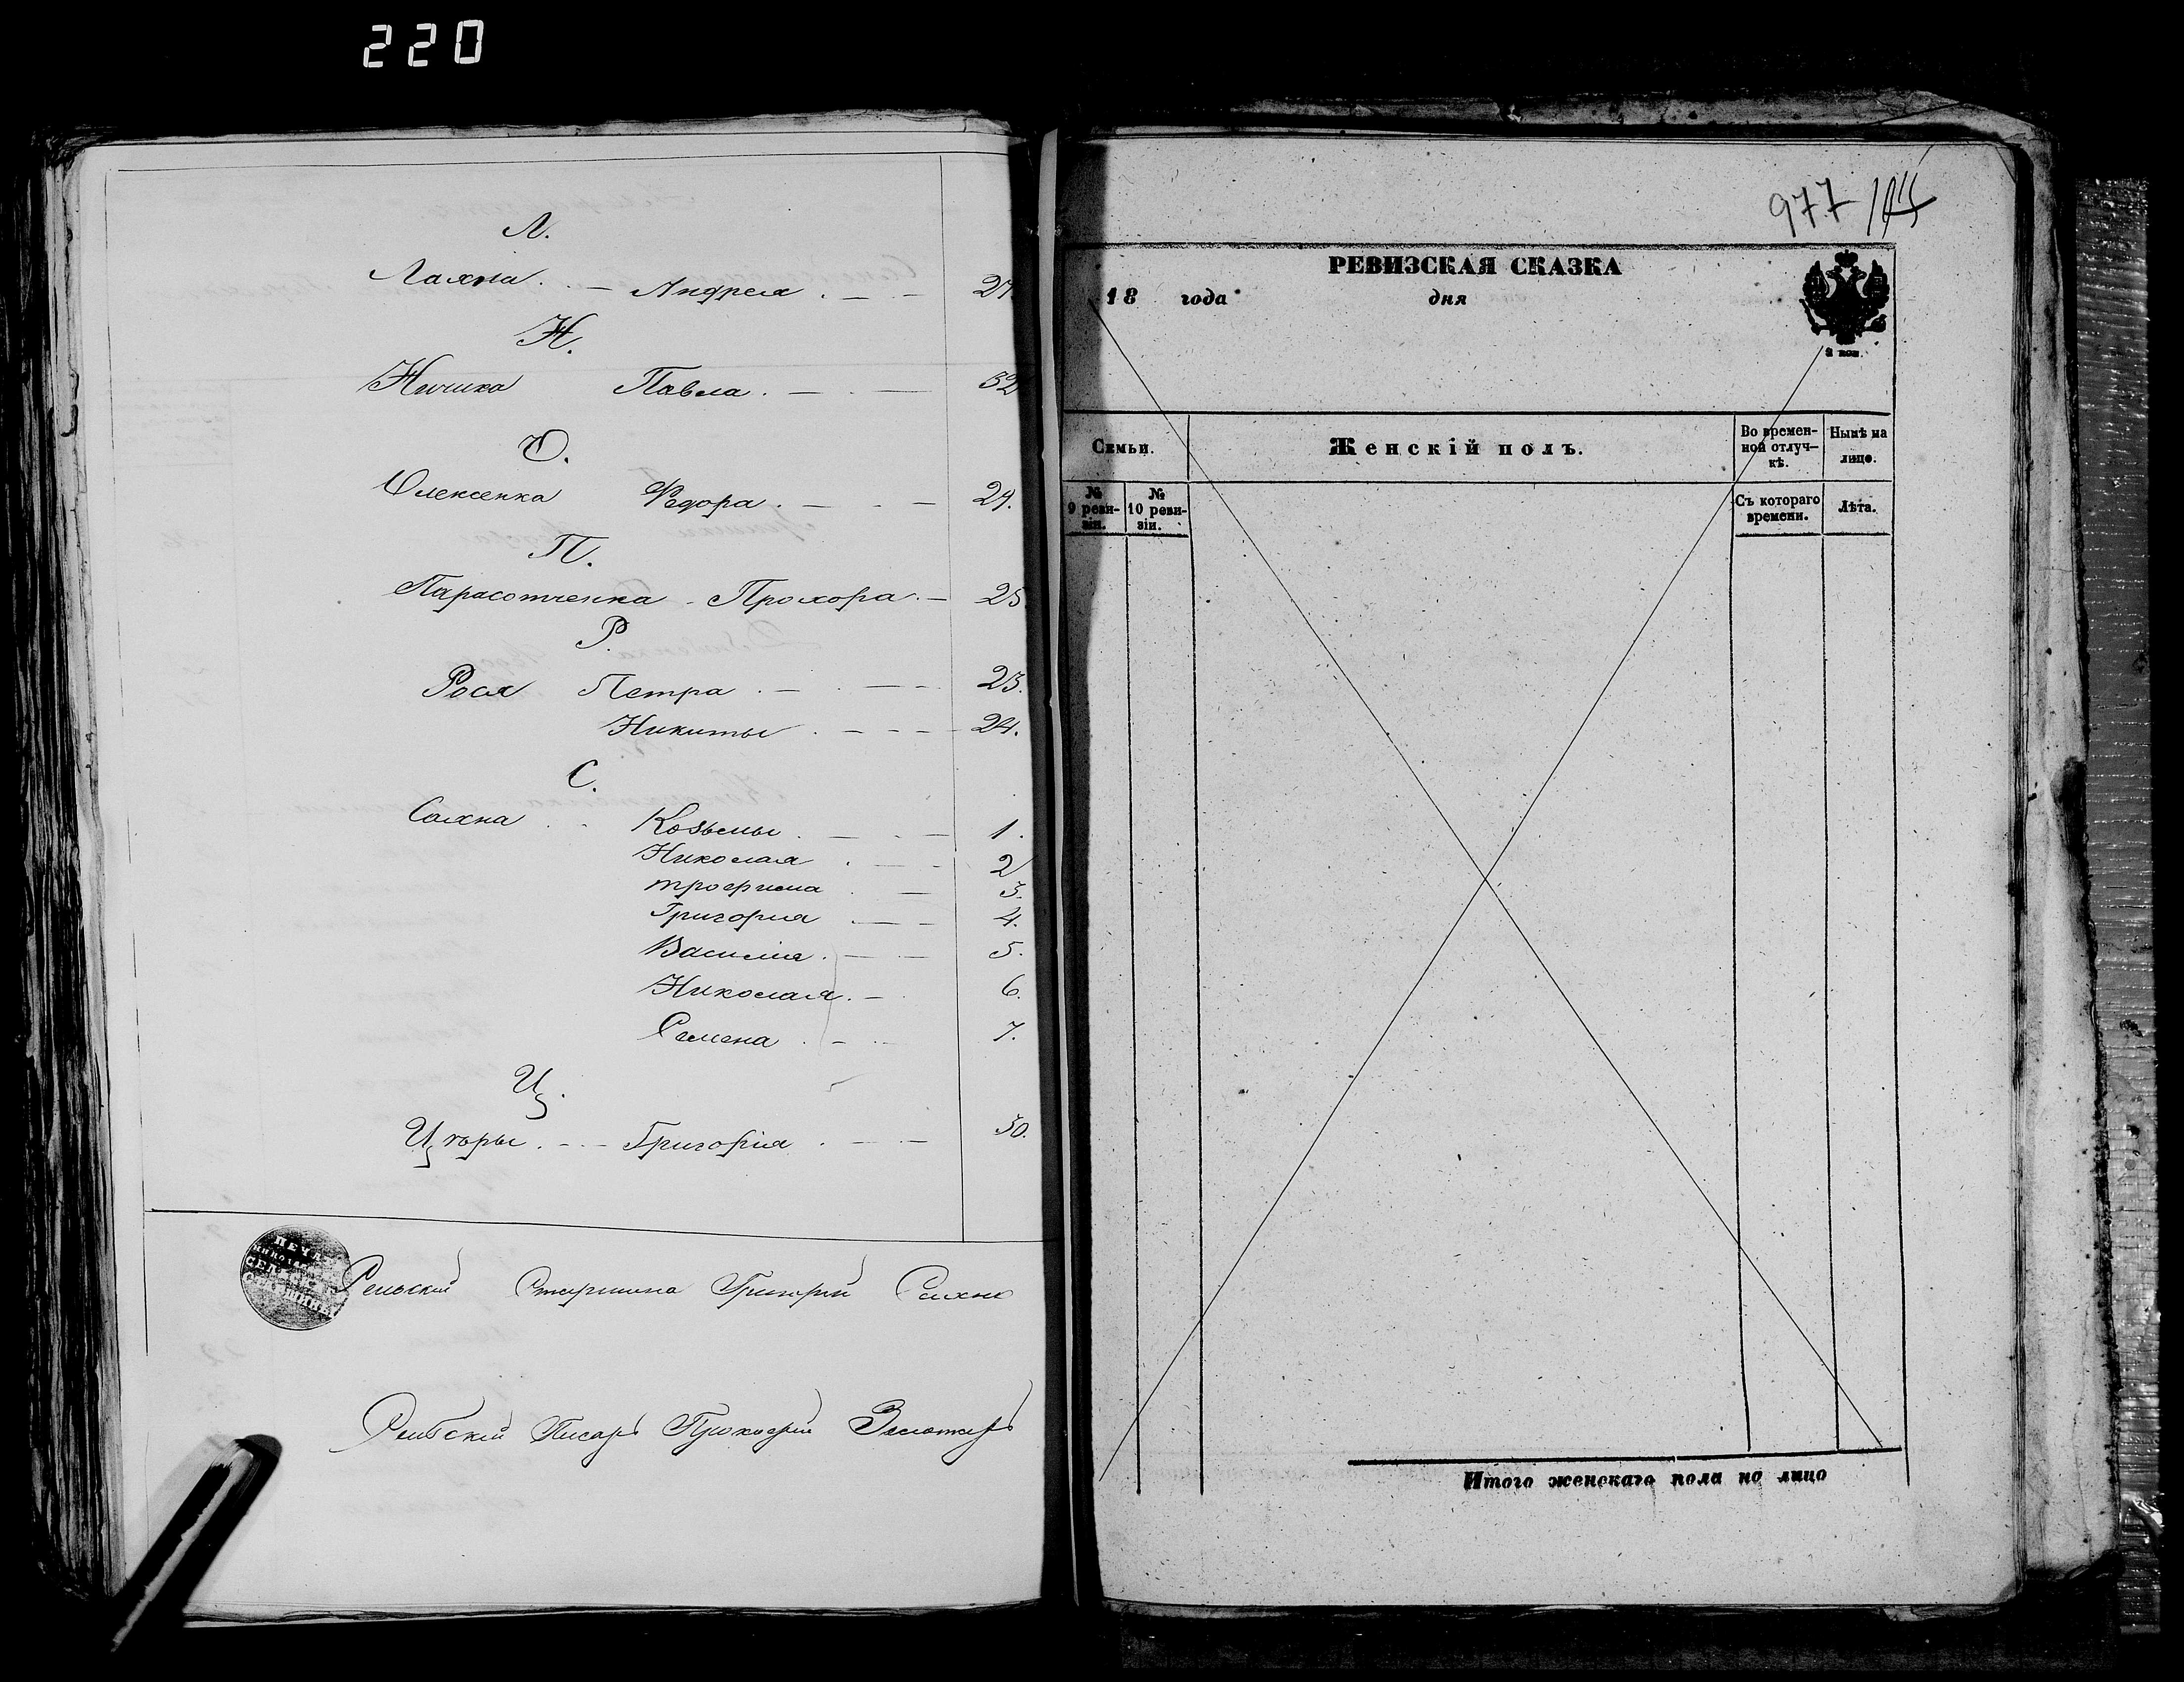 220
Л.
Лахна Андрея 27.
Н.
Ничика Павла 32
О.
Олексенка Федора 29.
П.
Парасотченка Прохора 25
Р.
Рося Петра 23.
Никиты 24.
С.
Сахна Козьмы 1.
Николая 2
Трофима 3.
Григория 4.
Василия 5.
Николая 6.
Семена 7.
Ц.
Григорія 30.
ПЕЧА
Сельский Старшина Григорий Сахно
Сельский Писарь Прокофий Золотарь
977
РЕВИЗСКАЯ СКАЗКА
18 года дня
2 коп.
Семьи.
Женскій полъ.
Во времен-
ной отлуч-
кѣ.
Нынѣ на
лицо.
№
9 реви-
зіи.
№
10 реви-
зіи.
Съ котораго
времени.
Лѣта.
Итого женскаго пола на лицо